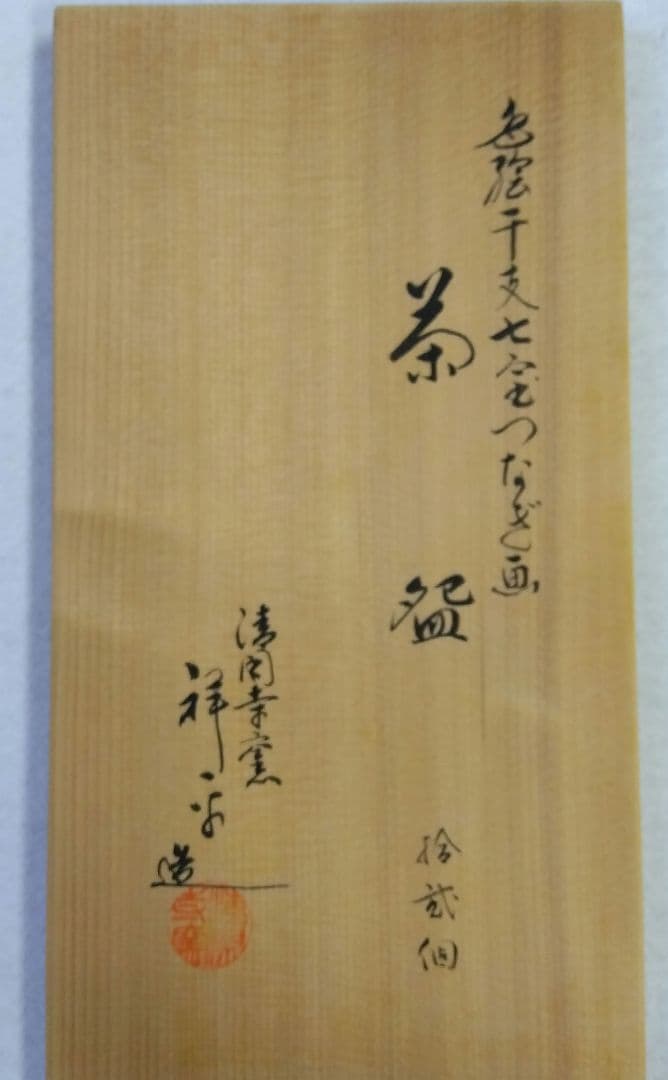 色絵干支七宝つなぎ画
茶盌
拾貳個
清閑寺窯
祥平
造